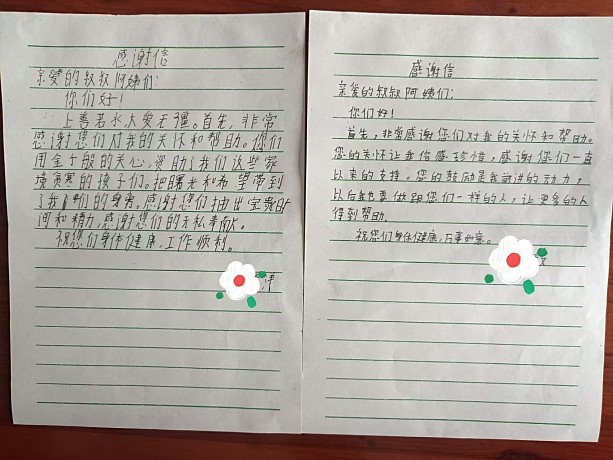 感谢信
亲爱的叔叔阿姨们:
你们好!
上善若水大爱无疆。首先,非常
感谢您们对我的关怀和帮助。您们
用金子般的关心,资助了我们这些家
境贫寒的孩子们。把曙光和希望带到
了我们的身旁。感谢您们抽出宝贵时
间和精力,感谢您们的无私奉献。
祝您们身体健康,工作顺利。
感谢信
亲爱的叔叔阿姨们:
你们好!
首先,非常感谢您们对我的关怀和帮助。
您的关怀让我倍感珍惜,感谢您们一直
以来的支持。您的鼓励是我前进的动力,
以后我也要做跟您们一样的人,让更多的人
得到帮助。
祝您们身体健康,万事如意。